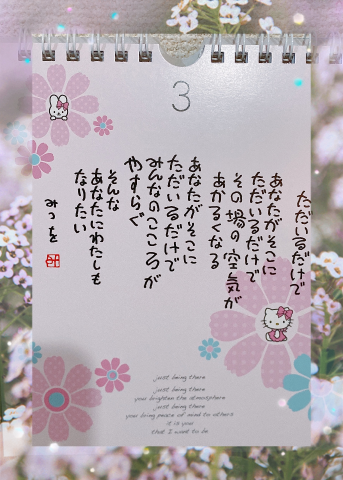 3
ただいるだけで
あなたがそこに
ただいるだけで
その場の空気が
あかるくなる
あなたがそこに
ただいるだけで
みんなのこころが
やすらぐ
そんな
あなたにわたしも
なりたい
みつを
just being there
just being there
you brighten the atmosphere
just being there
you bring peace of mind to others
it is you
that I want to be